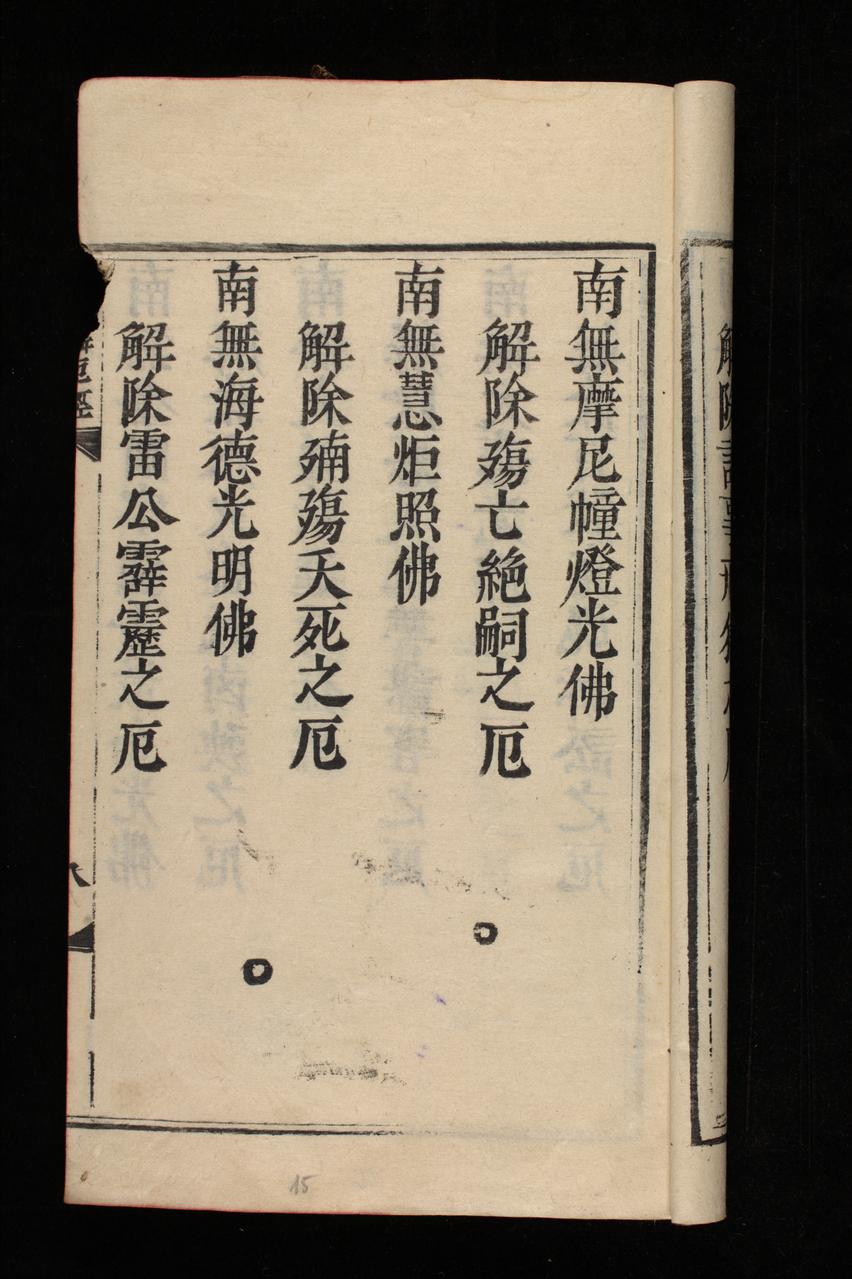 南無摩尼幢燈光佛
解除殤亡絶嗣之厄
南無慧炬照佛
解除㱡殤夭死之厄
南無海德光明佛
解除雷公霹靂之厄
厄經
八
15